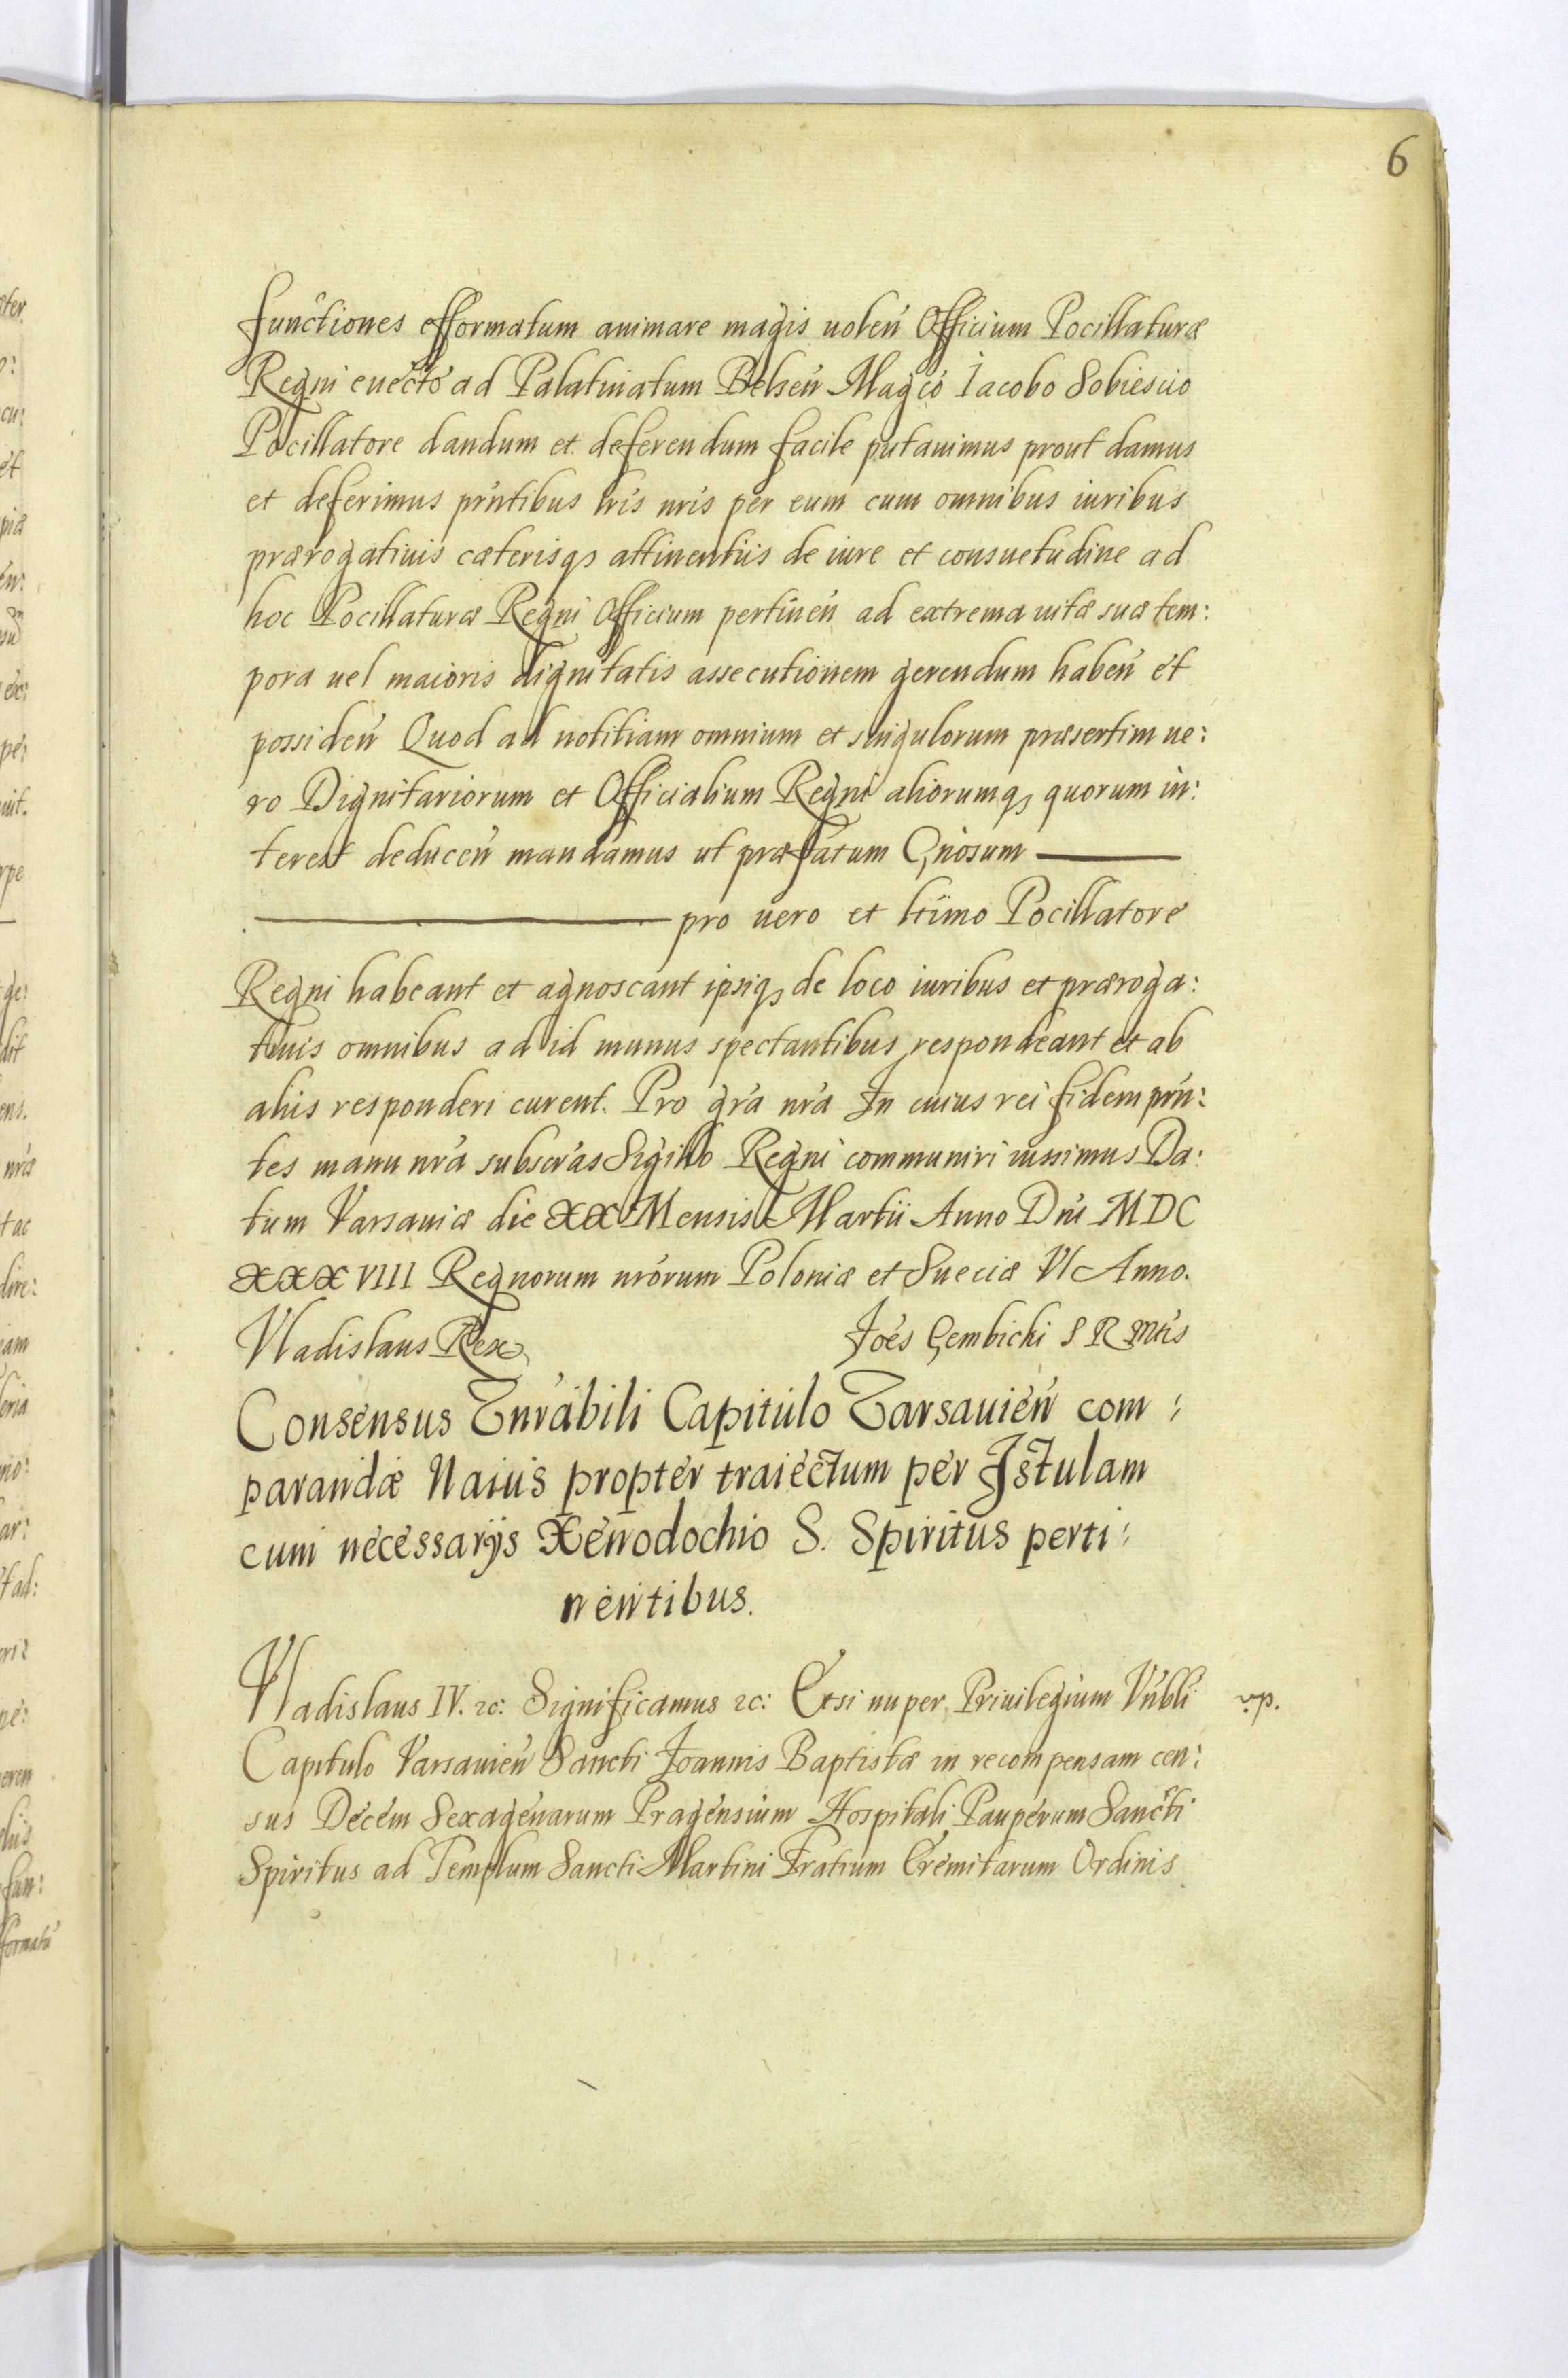 6
functiones efformatum animare magis uoleń Officium Pocillaturæ
Regni euecto ad Palatinatum Belseń Magco Iacobo Sobiescio
Pocillatore dandum et deferendum facile putauimus prout damus
et deferimus prńtibus lris nris per eum cum omnibus iuribus
prærogatiuis cæterisq3 attinentiis de iure et consuetudine ad
hoc Pocillaturæ Regni Officium pertineń ad extrema uitæ suæ tem:
pora uel maioris dignitatis assecutionem gerendum habeń et
possideń Quod ad notitiam omnium et singulorum præsertim ue:
ro Dignitariorum et Officialium Regni aliorumq3 quorum in:
terest deduceń mandamus ut præfatum Gnosum ———
——— pro uero et ltimo Pocillatore
Regni habeant et agnoscant ipsiq3 de loco iuribus et præroga:
tiuis omnibus ad id munus spectantibus respondeant et ab
aliis responderi curent. Pro gra nra In cuius rei fidem prń:
tes manu nra subscras Sigillo Regni communiri iussimus Da:
tum Varsauiæ die XX Mensis Martii Anno Dni MDC
XXXVIII Regnorum nrorum Poloniæ et Sueciæ VI Anno.
Vladislaus Rex
Joes Gembichi S R Mtis
Consensus Vnrabili Capitulo Varsauień com:
parandæ Nauis propter traiectum per Istulam
cum necessarijs Xenodochio S. Spiritus perti:
nentibus.
Vladislaus IV. &c: Significamus &c: Etsi nuper Priuilegium Vnbli
vp.
Capitulo Varsauień Sancti Joannis Baptistæ in recompensam cen:
sus Decem Sexagenarum Pragensium Hospitali Pauperum Sancti
Spiritus ad Templum Sancti Martini Fratrum Eremitarum Ordinis